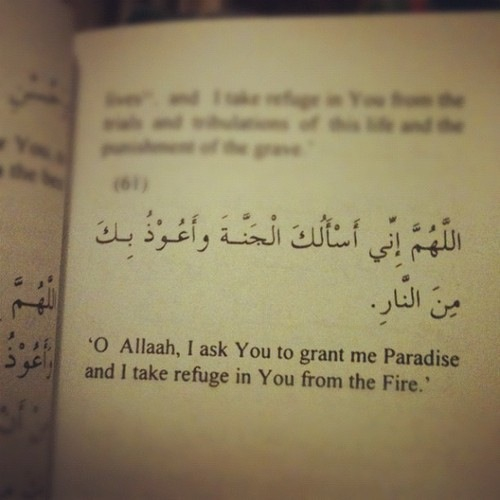 lives", and I take refuge in You from the
trials and tribulations of this life and the
punishment of the grave.'
(61)
اللَّهُمَّ إِنِّي أَسْأَلُكَ الْجَنَّـةَ وأَعُـوْذُ بِـكَ
مِنَ النَّارِ.
'O Allaah, I ask You to grant me Paradise
and I take refuge in You from the Fire.'
للَّهُـمَّ
وَأَعُوْذُ